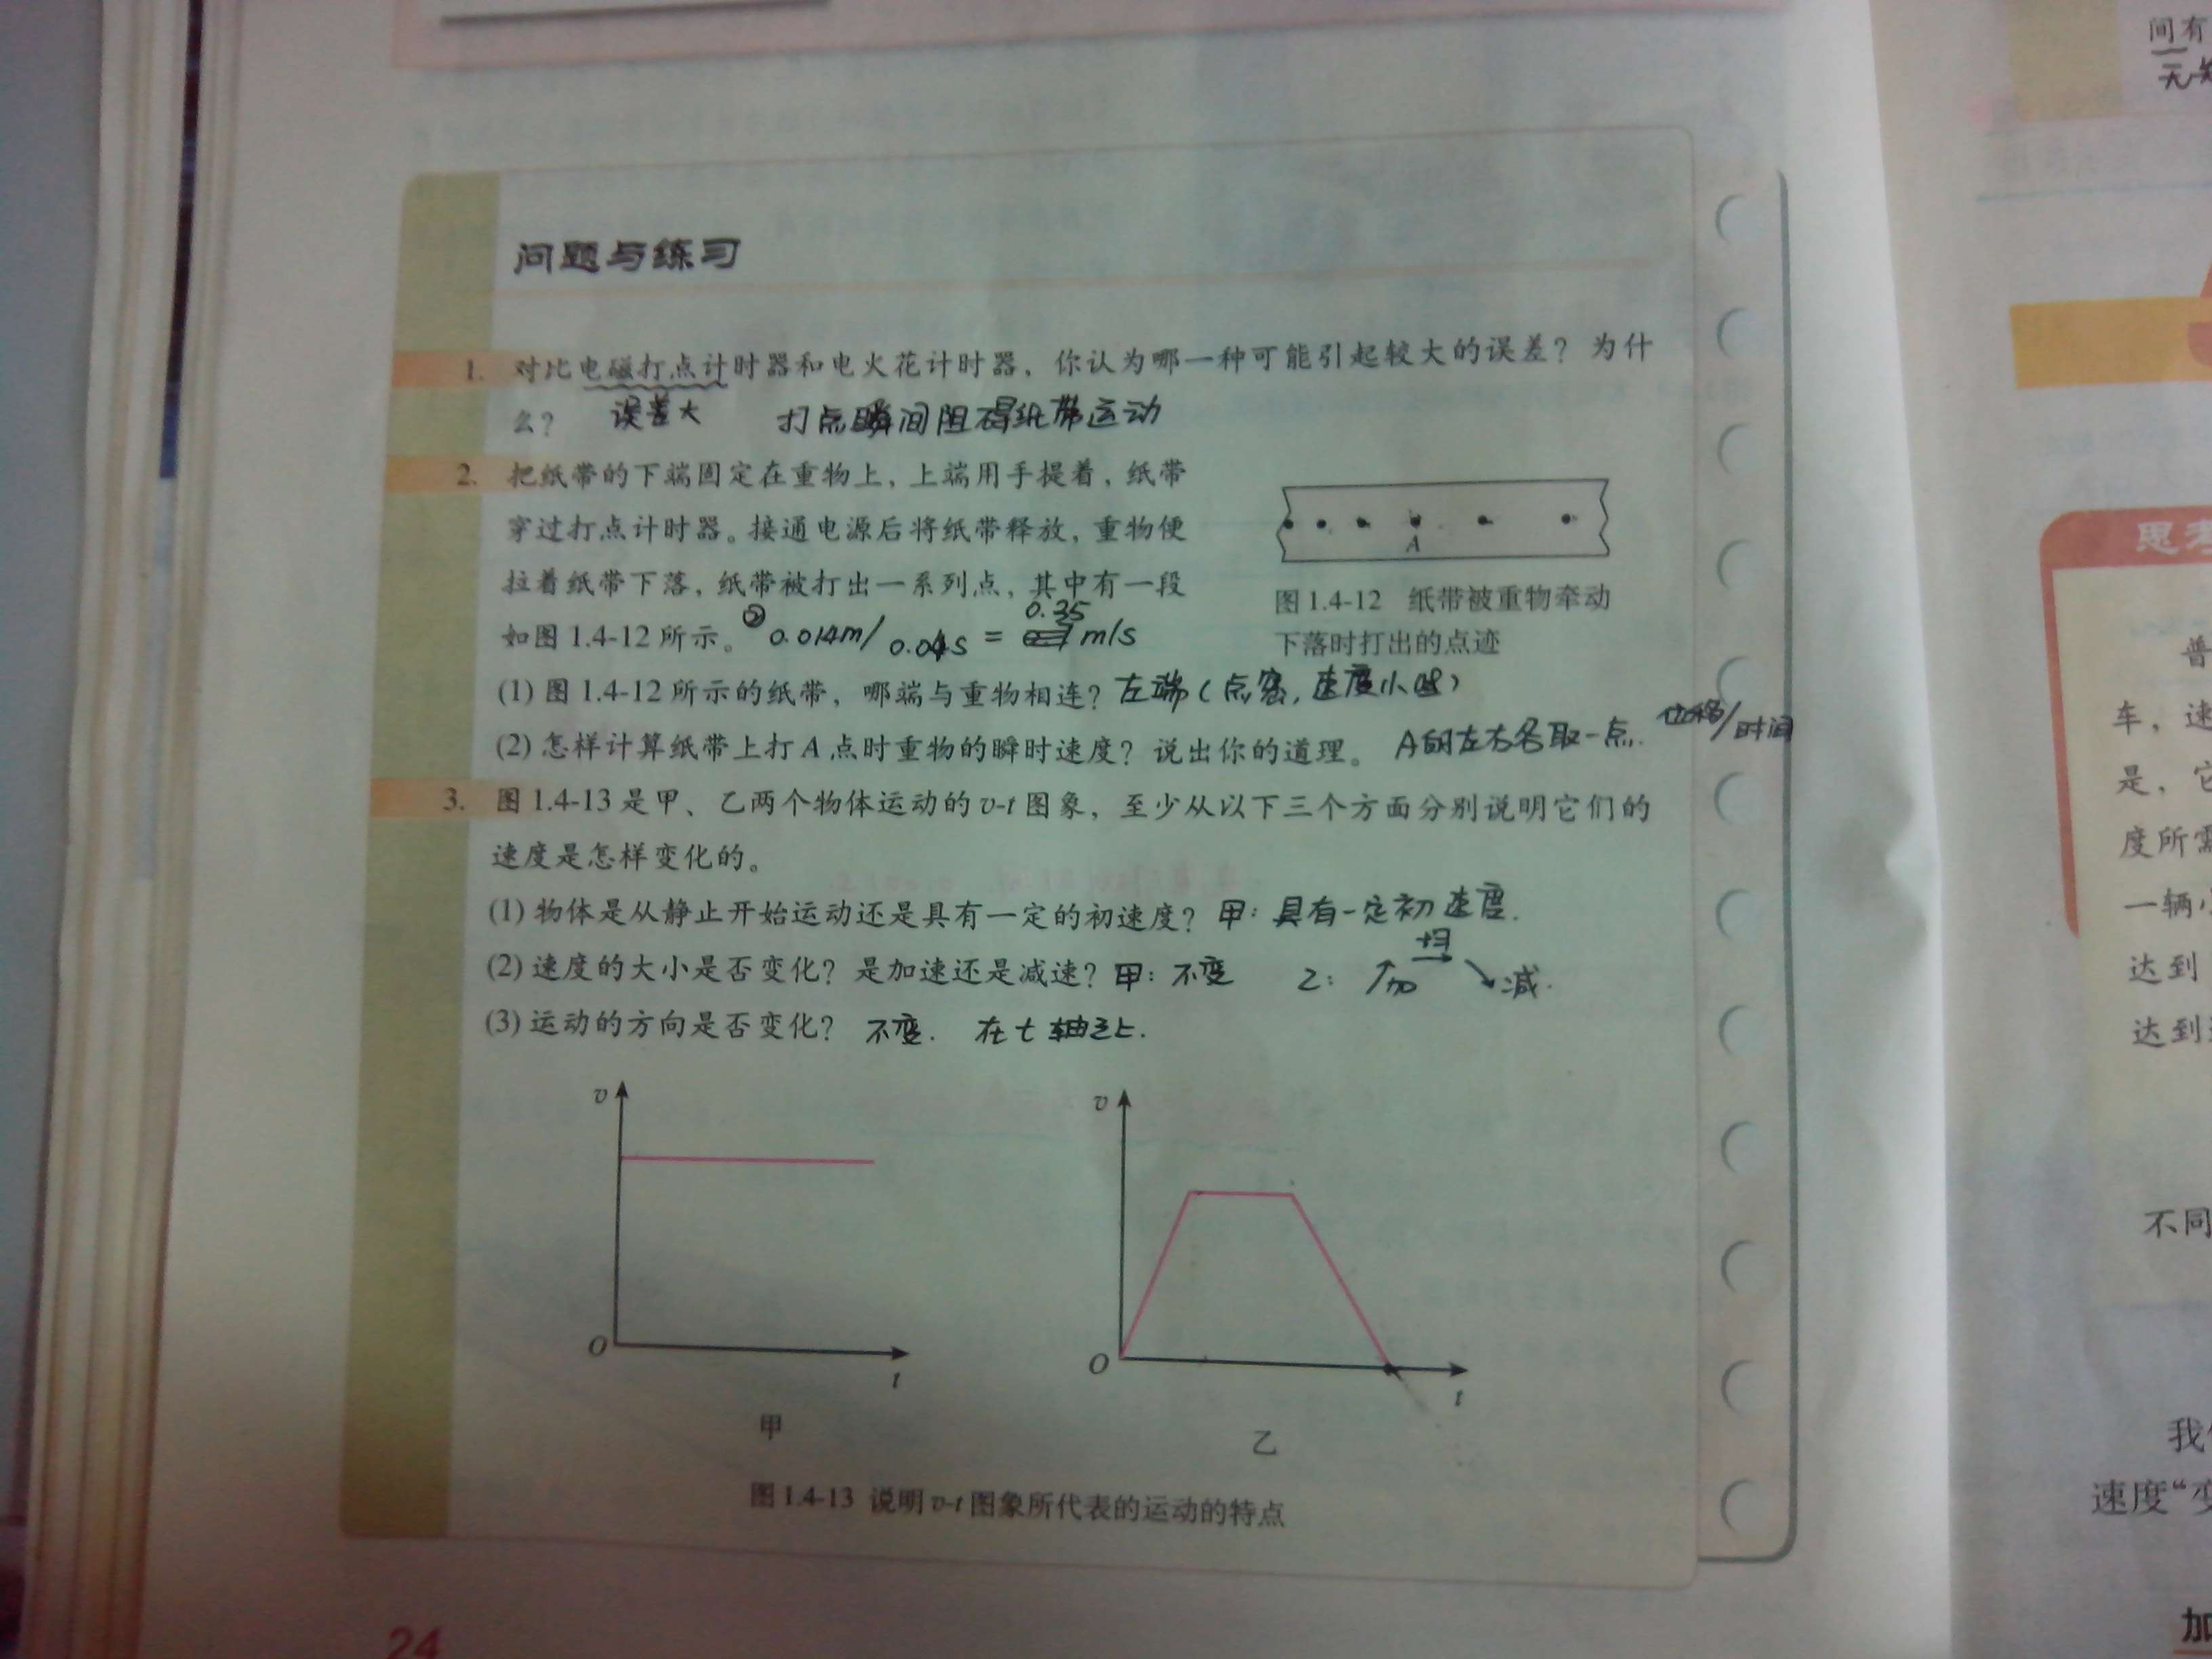 问题与练习
1. 对比电磁打点计时器和电火花计时器，你认为哪一种可能引起较大的误差？为什
么？ 误差大 打点瞬间阻碍纸带运动
2. 把纸带的下端固定在重物上，上端用手提着，纸带
穿过打点计时器。接通电源后将纸带释放，重物便
拉着纸带下落，纸带被打出一系列点，其中有一段
如图 1.4-12 所示。 ② 0.014m/0.04s = 0.35 m/s
A
图 1.4-12 纸带被重物牵动
下落时打出的点迹
(1) 图 1.4-12 所示的纸带，哪端与重物相连？ 左端（点密，速度小）
(2) 怎样计算纸带上打 A 点时重物的瞬时速度？说出你的道理。 A的左右各取一点. 位移/时间
3. 图 1.4-13 是甲、乙两个物体运动的 v-t 图象，至少从以下三个方面分别说明它们的
速度是怎样变化的。
(1) 物体是从静止开始运动还是具有一定的初速度？ 甲：具有一定初速度.
(2) 速度的大小是否变化？是加速还是减速？ 甲：不变 乙：↗加 →匀 ↘减.
(3) 运动的方向是否变化？ 不变. 在 t 轴之上.
v
O
t
甲
v
O
t
乙
图 1.4-13 说明 v-t 图象所代表的运动的特点
24
间有
思考
普
车，速
是，它
度所需
一辆小
达到
达到
不同
我们
速度“变
加